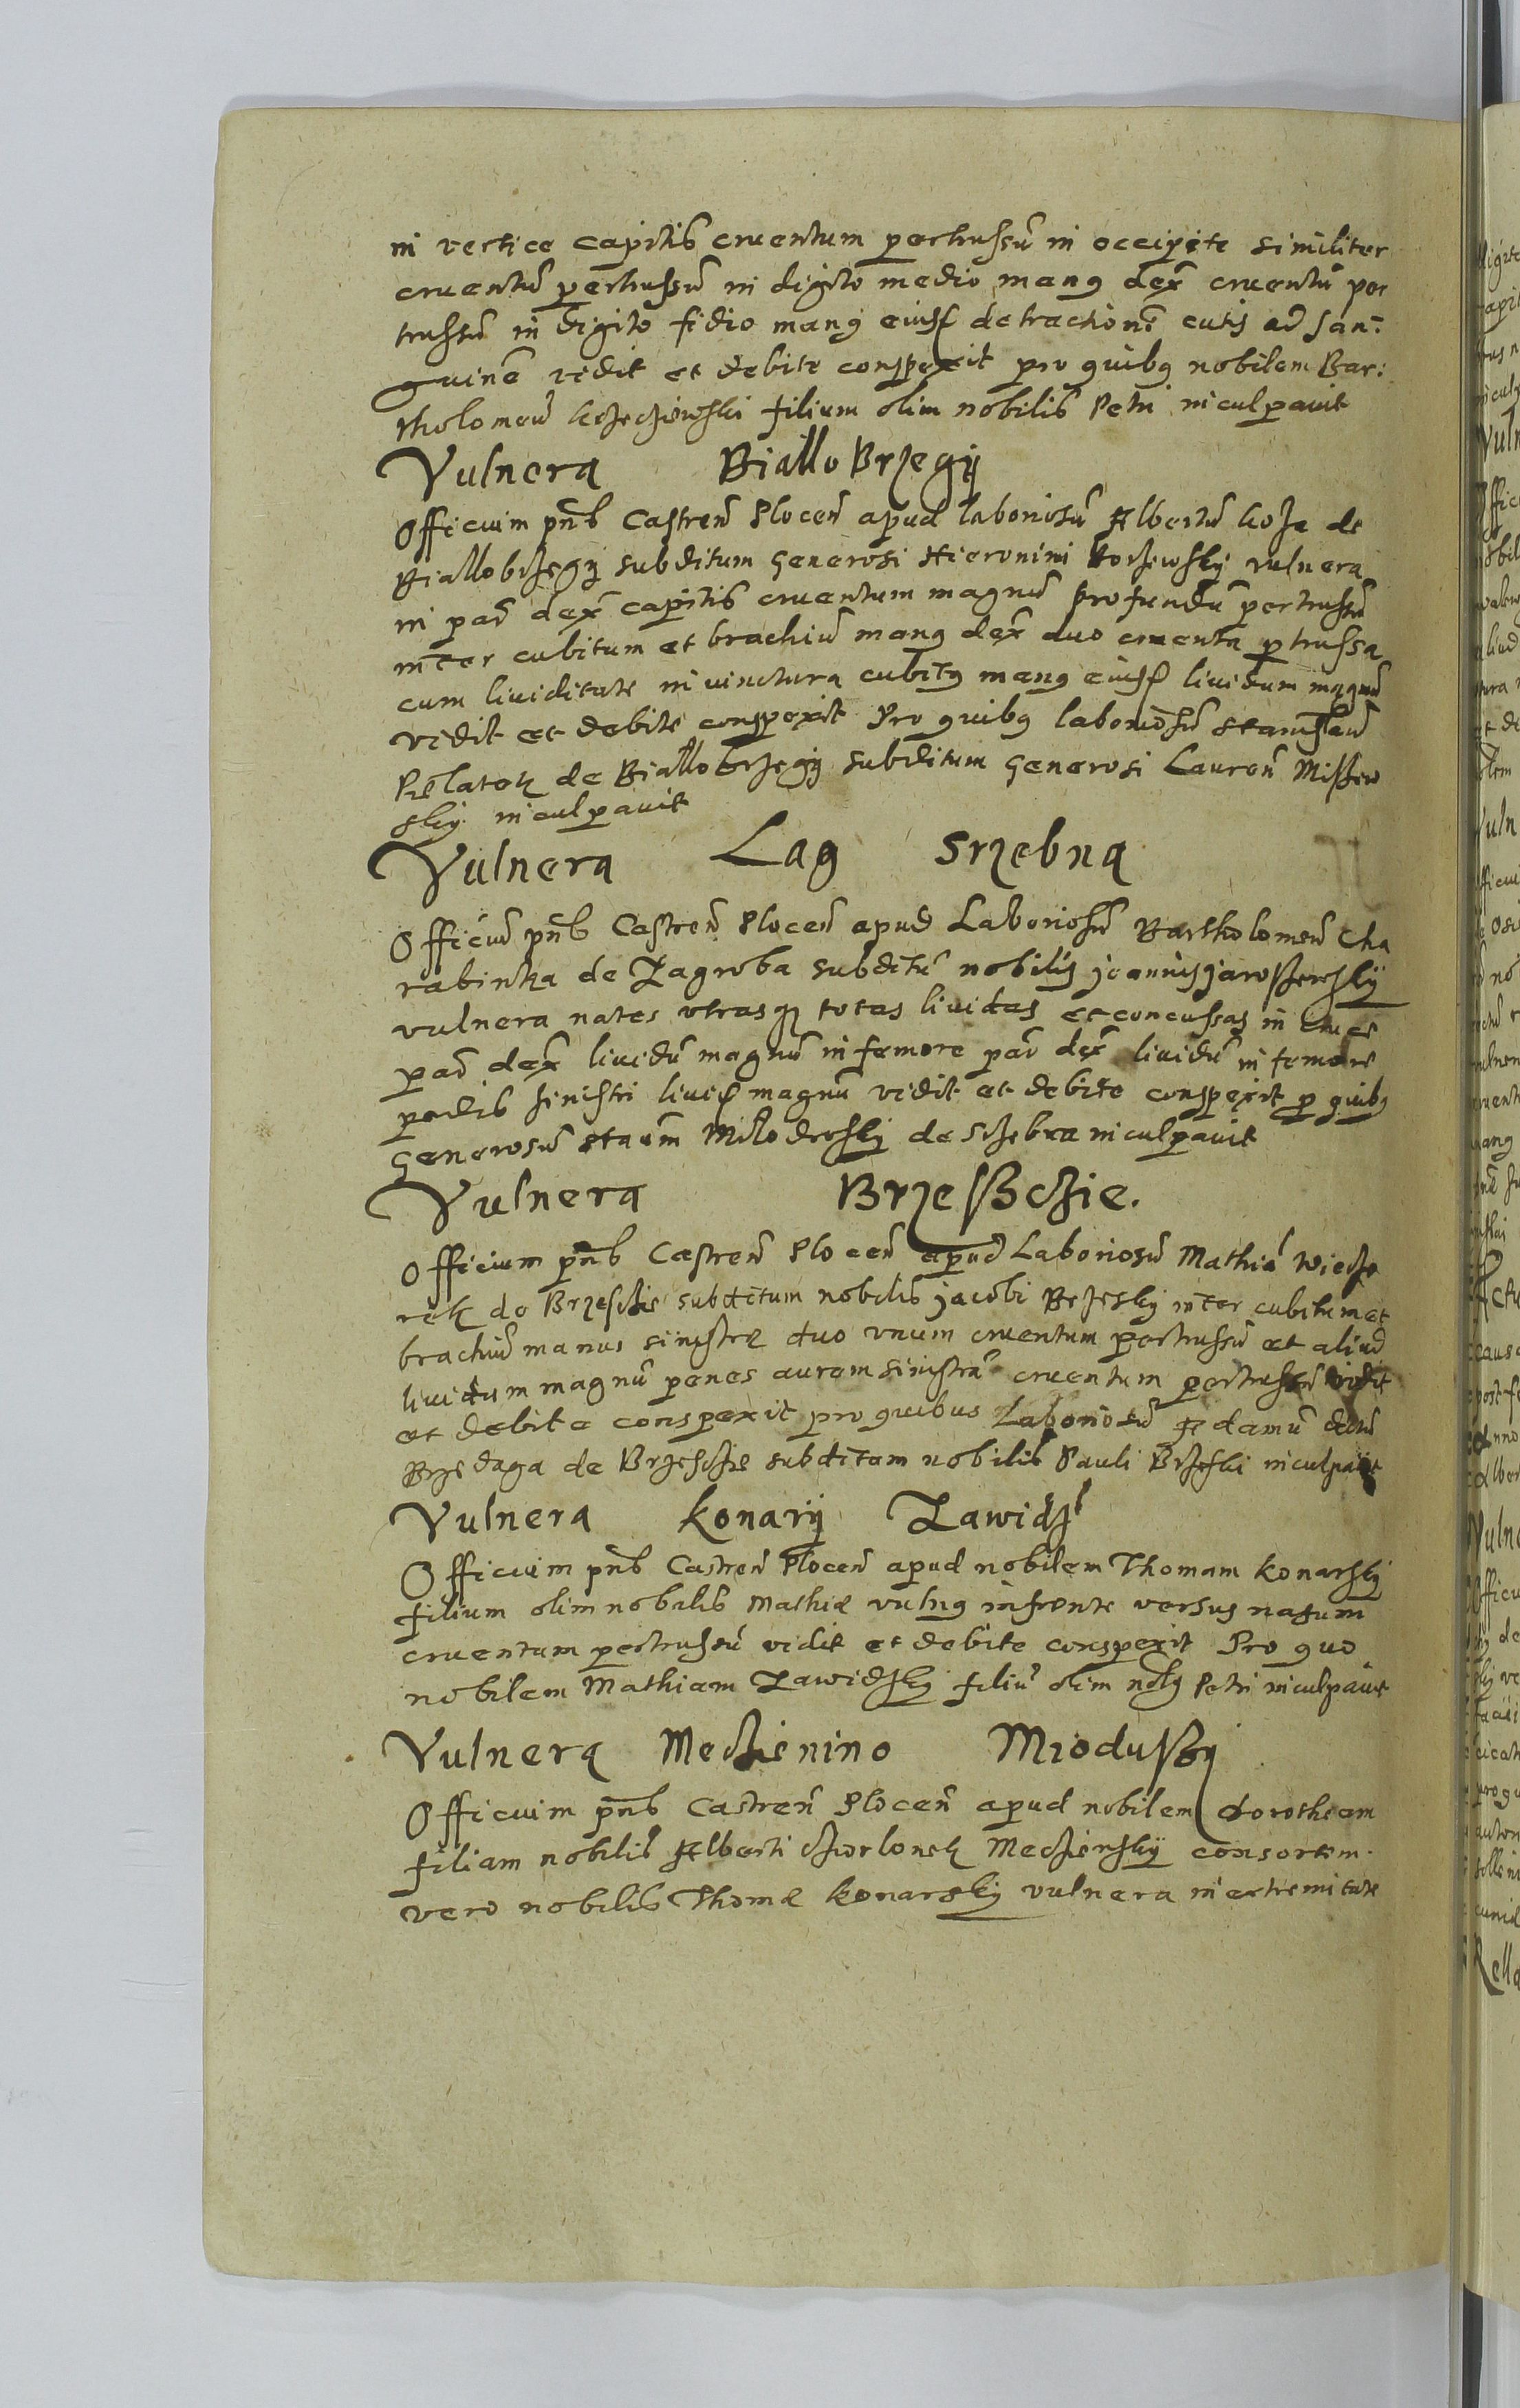 in vertice capitis cruentum pertrussū in occipite similiter
cruentū pertrussum in digito medio man9 dex̄ cruentū per
trussū in digito fidio man9 eiusd detractionē cutis ad san-
guinē vidit et debite conspexit pro quib9 nobilem Bar:
tholomeū filium olim nobilis Petri inculpavit
Vulnera Biallo Brzegÿ
Officium pn̄s Castren̄ Plocen̄ apud laboriosū Albertū koza de
Biallobrzegÿ subditum Generosi Hieronimi vulnera
in par̄ dex̄ capitis cruentum magnū profundū pertrussū
inter cubitum et brachiū man9 dex̄ duo cruenta ptrussa
cum liuiditate in iunctura cubit9 man9 eiusd liuidum magnū
vidit et debite conspexit Pro quib9 laboriosū Stanislaū
de Biallobrzegÿ subditum Generosi Lauren̄ Missew
skÿ inculpavit
Vulnera Lag Srzebna
Officiū pn̄s Castren̄ Plocen̄ apud Laboriosū Bartholomeū Cha
rabinka de Zagroba subditū nobilis joannis jaroszewskÿ
vulnera nates vtrasq3 totas liuidas et concussas in crure
par̄ dex̄ liuidū magnū in femore par̄ dex̄ liuidū in femore
pedis sinistri liuid magnū vidit et debite conspexit p quib9
Generosū Staūm Milodroskÿ de Srzebna inculpavit
Vulnera Brzesszczie.
Officium pn̄s Castren̄ Plocen̄ apud Laboriosū Mathiā Wieczo
rek de Brzesczie subditum nobilis jacobi Brzeskÿ inter cubitum et
brachiū manus sinistræ duo vnum cruentum pertrussū et aliud
liuidum magnū penes aurem sinistrā cruentum pertrussū vidit
et debite conspexit pro quibus Laboriosū Adamū dictū
Brzedaga de Brzesczie subditum nobilis Pauli Brzeski inculpavit
Vulnera Konarÿ Zawidz
Officium pn̄s Castren̄ Plocen̄ apud nobilem Thomam Konarskÿ
filium olim nobilis Mathiæ vuln9 in fronte versus nasum
cruentum pertrussū vidit et debite conspexit Pro quo
nobilem Mathiam Zawidzkÿ filiū olim nob Petri inculpavit
Vulnera Meczienino Miodusszÿ
Officium pn̄s Castren̄ Plocen̄ apud nobilem dorotheam
filiam nobilis Alberti Meczienskÿ consortem
vero nobilis Thomæ Konarskÿ vulnera in extremitate